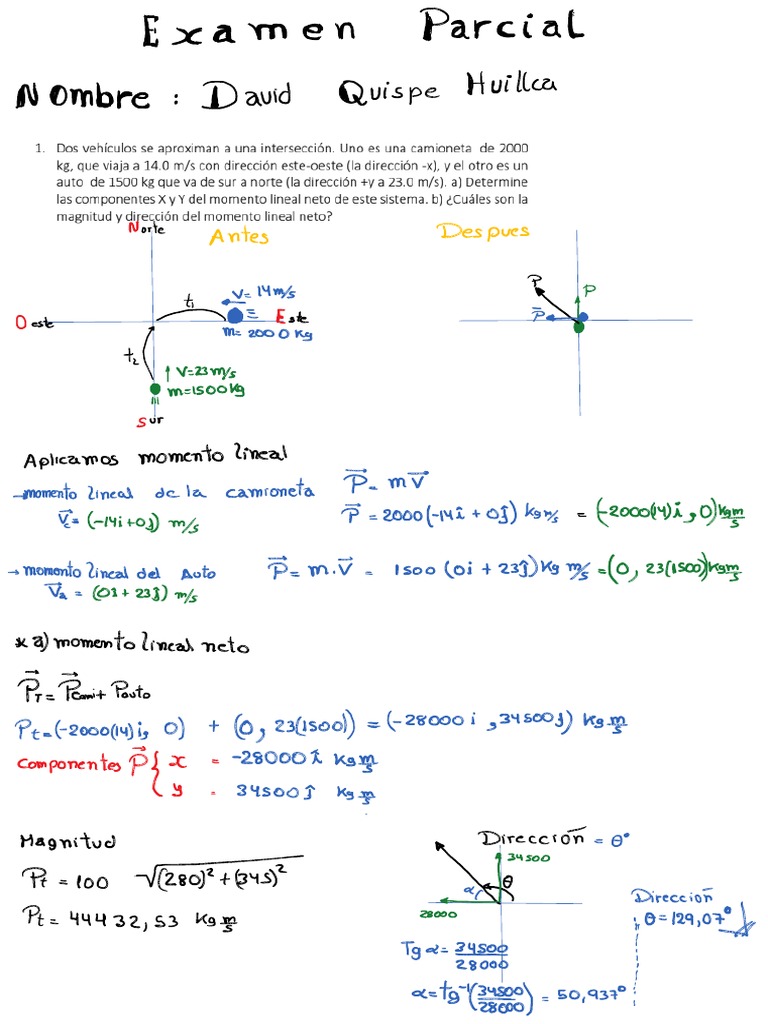 Examen Parcial
Nombre : David Quispe Huillca
1. Dos vehículos se aproximan a una intersección. Uno es una camioneta de 2000
kg, que viaja a 14.0 m/s con dirección este-oeste (la dirección -x), y el otro es un
auto de 1500 kg que va de sur a norte (la dirección +y a 23.0 m/s). a) Determine
las componentes X y Y del momento lineal neto de este sistema. b) ¿Cuáles son la
magnitud y dirección del momento lineal neto?
Norte
Antes
Despues
V= 14 m/s
t₁
Oeste
Este
m= 2000 Kg
t₂
V=23 m/s
m=1500 Kg
Sur
P
P
P⃗
Aplicamos momento lineal
P⃗ = m V⃗
→momento lineal de la camioneta
V⃗c = (-14i+0j) m/s
P⃗ = 2000(-14î + 0ĵ) kg m/s = (-2000(14)i, 0) Kg m/s
→ momento lineal del Auto
V⃗a = (0i + 23j) m/s
P⃗ = m.V⃗ = 1500 (0i + 23j) Kg m/s = (0, 23(1500)) Kg m/s
* a) momento lineal neto
P⃗T = P⃗cami + Pauto
Pt = (-2000(14)i, 0) + (0, 23(1500)) = (-28000 i, 34500 j) Kg m/s
Componentes P⃗ { x = -28000 î Kg m/s
y = 34500 ĵ Kg m/s
Magnitud
Pt = 100 √(280)²+(345)²
Pt = 44432,53 Kg m/s
Dirección = θ°
34500
α
θ
28000
Tg α = 34500/28000
α = tg⁻¹(34500/28000) = 50,937°
Dirección
θ = 129,07°